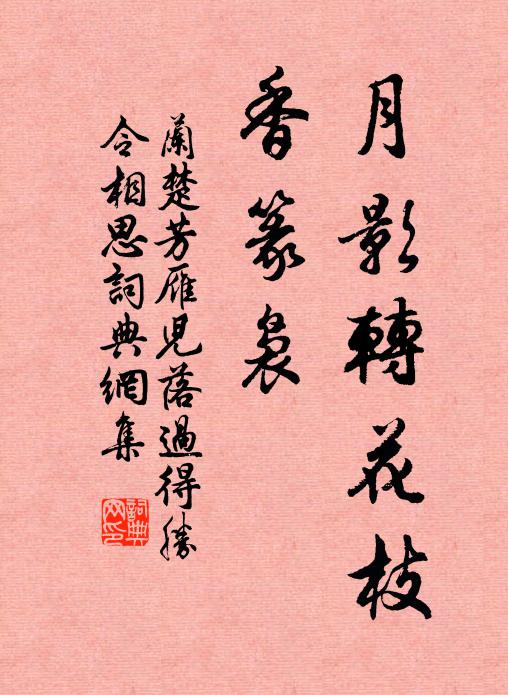 月影轉花枝
香篆裊
蘭楚芳雁児落過得勝
令相思詞典網集
詞典网印